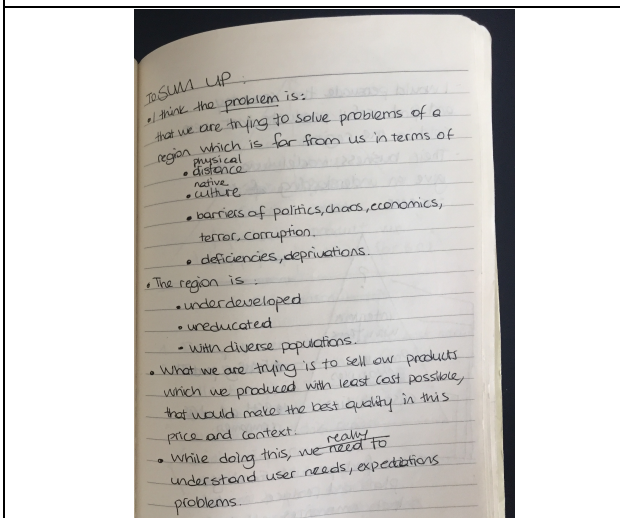 To SUM UP :
• I think the problem is:
that we are trying to solve problems of a
region which is far from us in terms of
physical
• distance
native
• culture
• barriers of politics, chaos, economics,
terror, corruption.
• deficiencies, deprivations.
• The region is :
• underdeveloped
• uneducated
• with diverse populations.
• What we are trying is to sell our products
which we produced with least cost possible,
that would make the best quality in this
price and context.
really
• While doing this, we need to
understand user needs, expectations
problems.